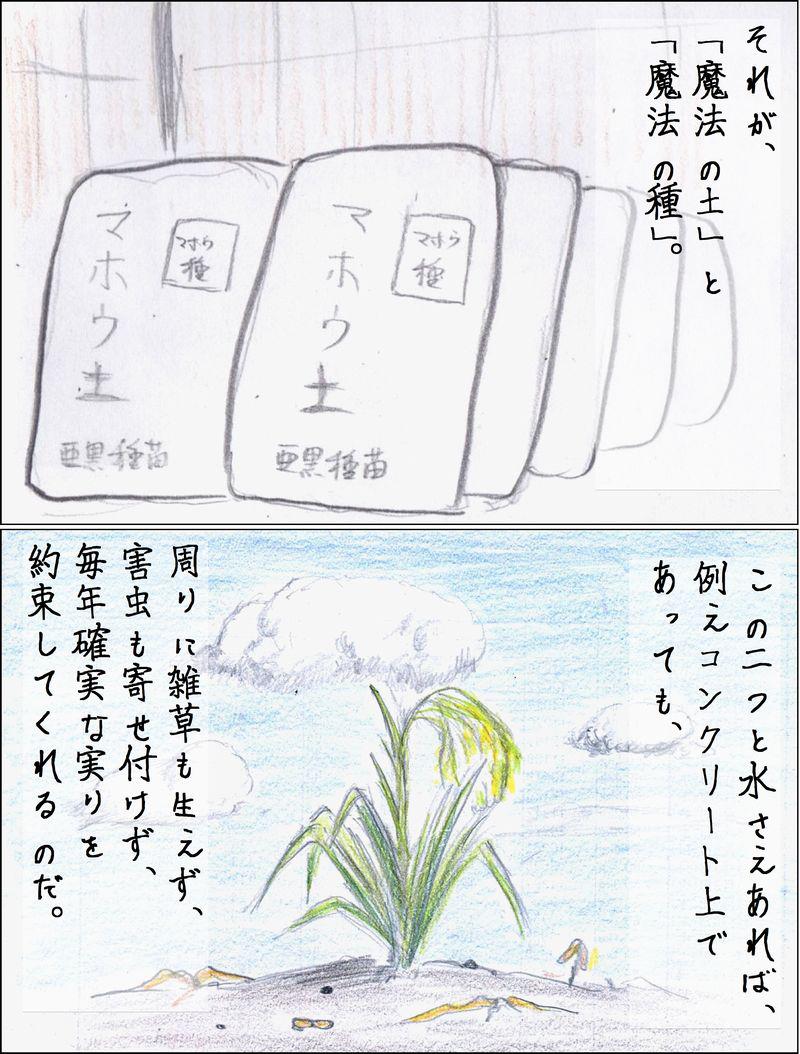 それが、
「魔法の土」と
「魔法の種」。
マホウ種
マホウ土
亜黒種苗
マホウ種
マホウ土
亜黒種苗
この二つと水さえあれば、
例えコンクリート上で
あっても、
周りに雑草も生えず、
害虫も寄せ付けず、
毎年確実な実りを
約束してくれるのだ。